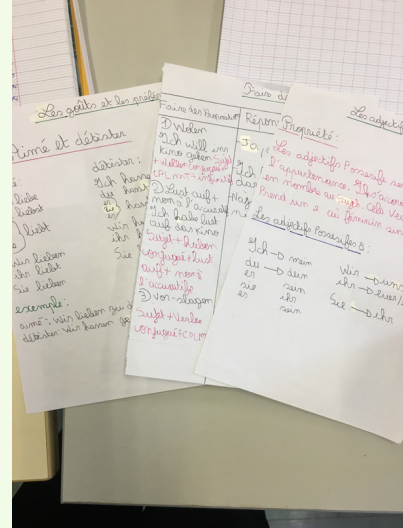 Les goûts et les préfér
aimé et détester
détester:
liebe
liebst
liebt
wir lieben
ihr liebt
Sie lieben
Ich hasse
du hasst
er hass
wir h
ihr h
Sie
exemple:
aimé: wir lieben zu d
détester: wir hassen
Faire des
Faire des Proposition
1) Wolen
ich will ins
kino gehen Sujet
+ wollen conjugué +
CPLMNT + infinitif
2) Lust auf +
nom à l'accusati
Ich habe lust
auf das kino
Sujet + haben
conjugué + lust
auf + nom à
l'accusatif
3) Vor-slagen
Sujet + Verbe
conjugué + CPLMT
Répon
Ja, i
Ich
das
Les adjectifs
Propriété:
Les adjectifs Possessifs
l'appartenance. Ils s'accor
en nombre au sujet. Cela veu
Prend un e au féminin
Les adjectifs Possessifs:
Ich → mein
du → dein
er sein
sie ihr
es sein
Wir → uns
ihr → euer
Sie → ihr